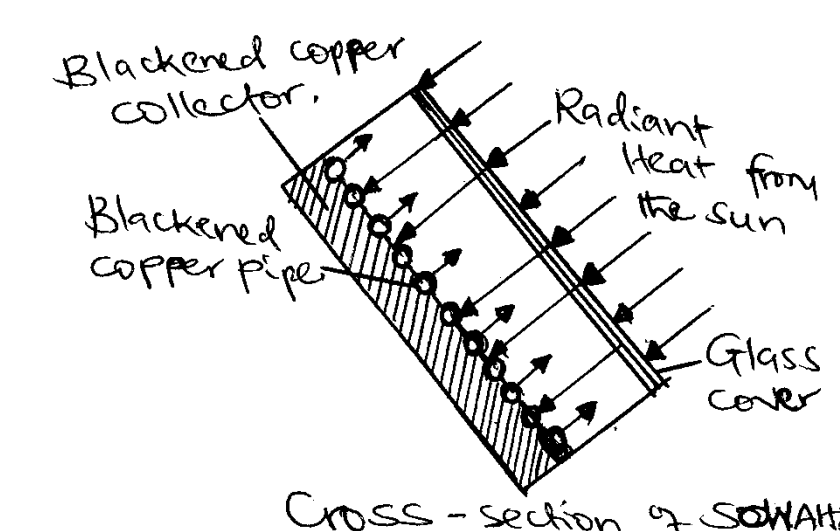 Blackened copper
collector.
Radiant
Heat from
the sun
Blackened
copper pipe
Glass
cover
Cross-section of SOWAH